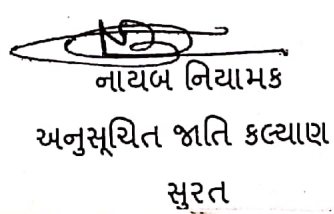 નાયબ નિયામક
અનુસૂચિત જાતિ કલ્યાણ
સુરત